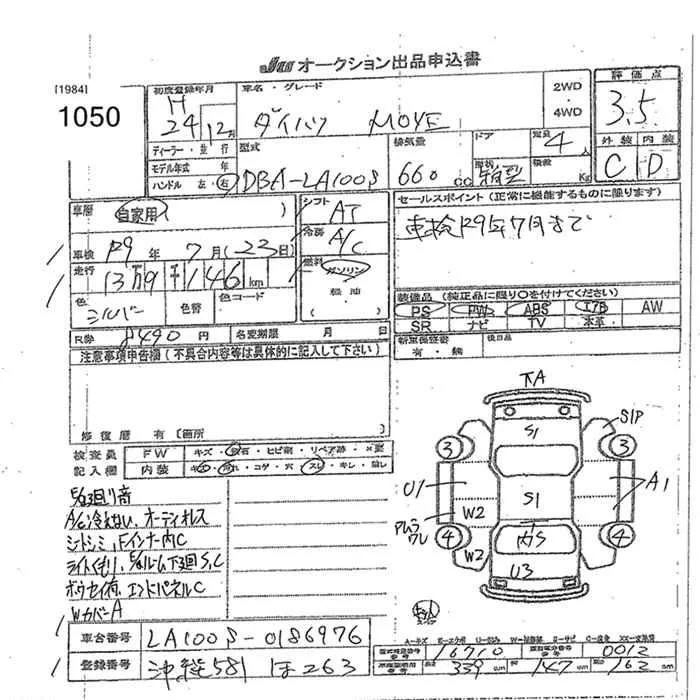 JU オークション出品申込書
[1984]
1050
初度登録年月
H 24年12月
車名・グレード
ダイハツ MOVE
2WD
4WD
評価点
3.5
外装 内装
C D
ディーラー・並行
モデル年式 年
ハンドル 左・右
型式
DBA-LA100S
排気量
660cc
ドア
定員
4人
形状
箱型
積載
Kg
車歴
自家用( )
車検 R9年7月(23日)
走行
13万9千146km
色
シルバー
色替
色コード
R券 8490円
名変期限 月 日
シフト
AT
冷房
A/C
燃料
ガソリン
軽油
( )
セールスポイント(正常に機能するものに限ります)
車検R9年7月まで
装備品(純正品に限り○を付けてください)
PS PW ABS エアB AW
SR ナビ TV 本革
新車保証書
有・無
後日品
注意事項申告欄(不具合内容等は具体的に記入して下さい)
修復歴 有〔箇所 〕
検査員
記入欄
FW キズ・飛石・ヒビ割・リペア跡・×要
内装 キズ・汚れ・コゲ・穴・スレ・キレ・
A/C冷えない、オーディオレス
シートシミ、Fインナー内C
ライトくもり、
エンドパネルC
WカバーA
下A
S1
S1P
3
3
U1
S1
A1
W2
4
4
W2
内S
U3
A-キズ E-エクボ U-凹み W-補修跡 S-サビ C-腐食 XX-交換済
車台番号 LA100S-0186976
登録番号 沖縄581 ほ263
型式指定
番号
16710
類別区分
番号
0012
長さ 339cm 幅 147cm 高さ 162cm